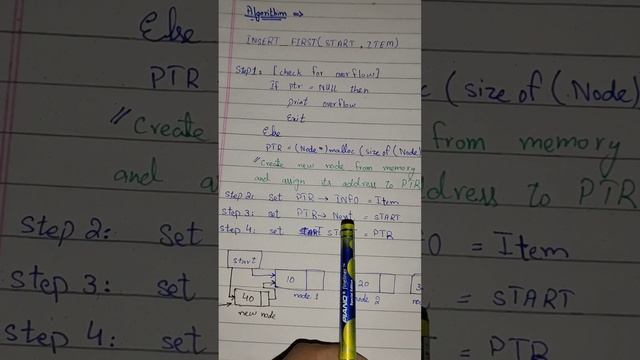 Algorithm ⇒
INSERT FIRST(START, ITEM)
Step1: [check for overflow]
If ptr = NULL then
print overflow
Exit
Else
PTR = (Node*)malloc(size of (Node)
// Create new node from memory
and assign its address to PTR
Step 2: set PTR → INFO = Item
Step 3: set PTR → Next = START
Step 4: set START = PTR
start
10
20
3
node 1
node 2
40
new node
PIANO
Else
PTR
c (size of (Node)
// Create
from memory
and a
dress to PTR
Step 2: set
O = Item
Step 3: set
= START
Step 4: set
= PTR